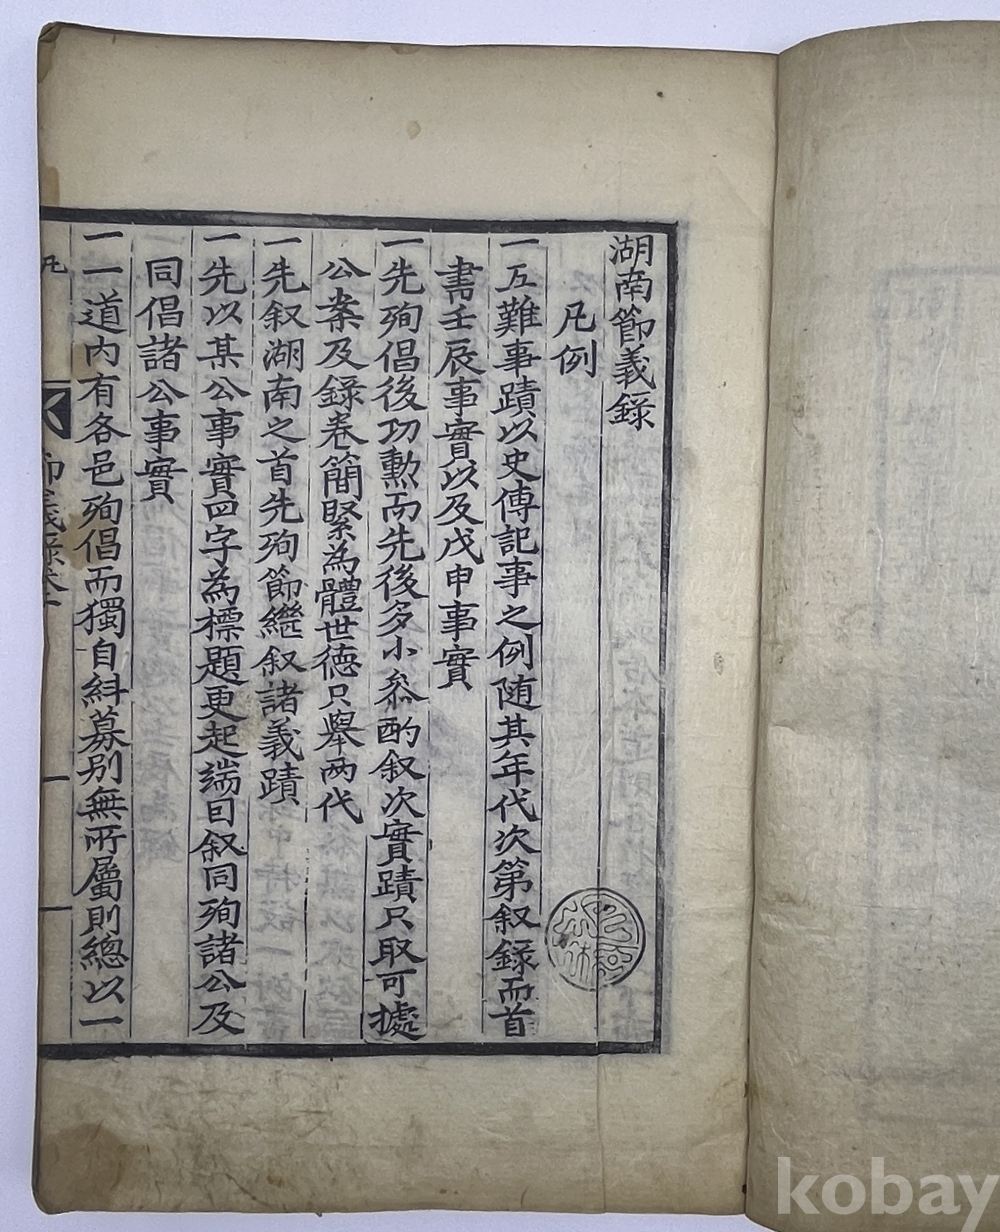 湖南節義錄
凡例
一五難事蹟以史傳記事之例随其年代次第叙録而首
書壬辰事實以及戊申事實
一先殉倡後功勳而先後多小叅酌叙次實蹟只取可據
公案及錄卷簡緊為體世德只舉两代
一先叙湖南之首先殉節繼叙諸義蹟
一先以某公事實四字為標題更起端曰叙同殉諸公及
同倡諸公事實
一一道内有各邑殉倡而獨自糾募别無所屬則總以一
凡
節義錄卷一
kobay